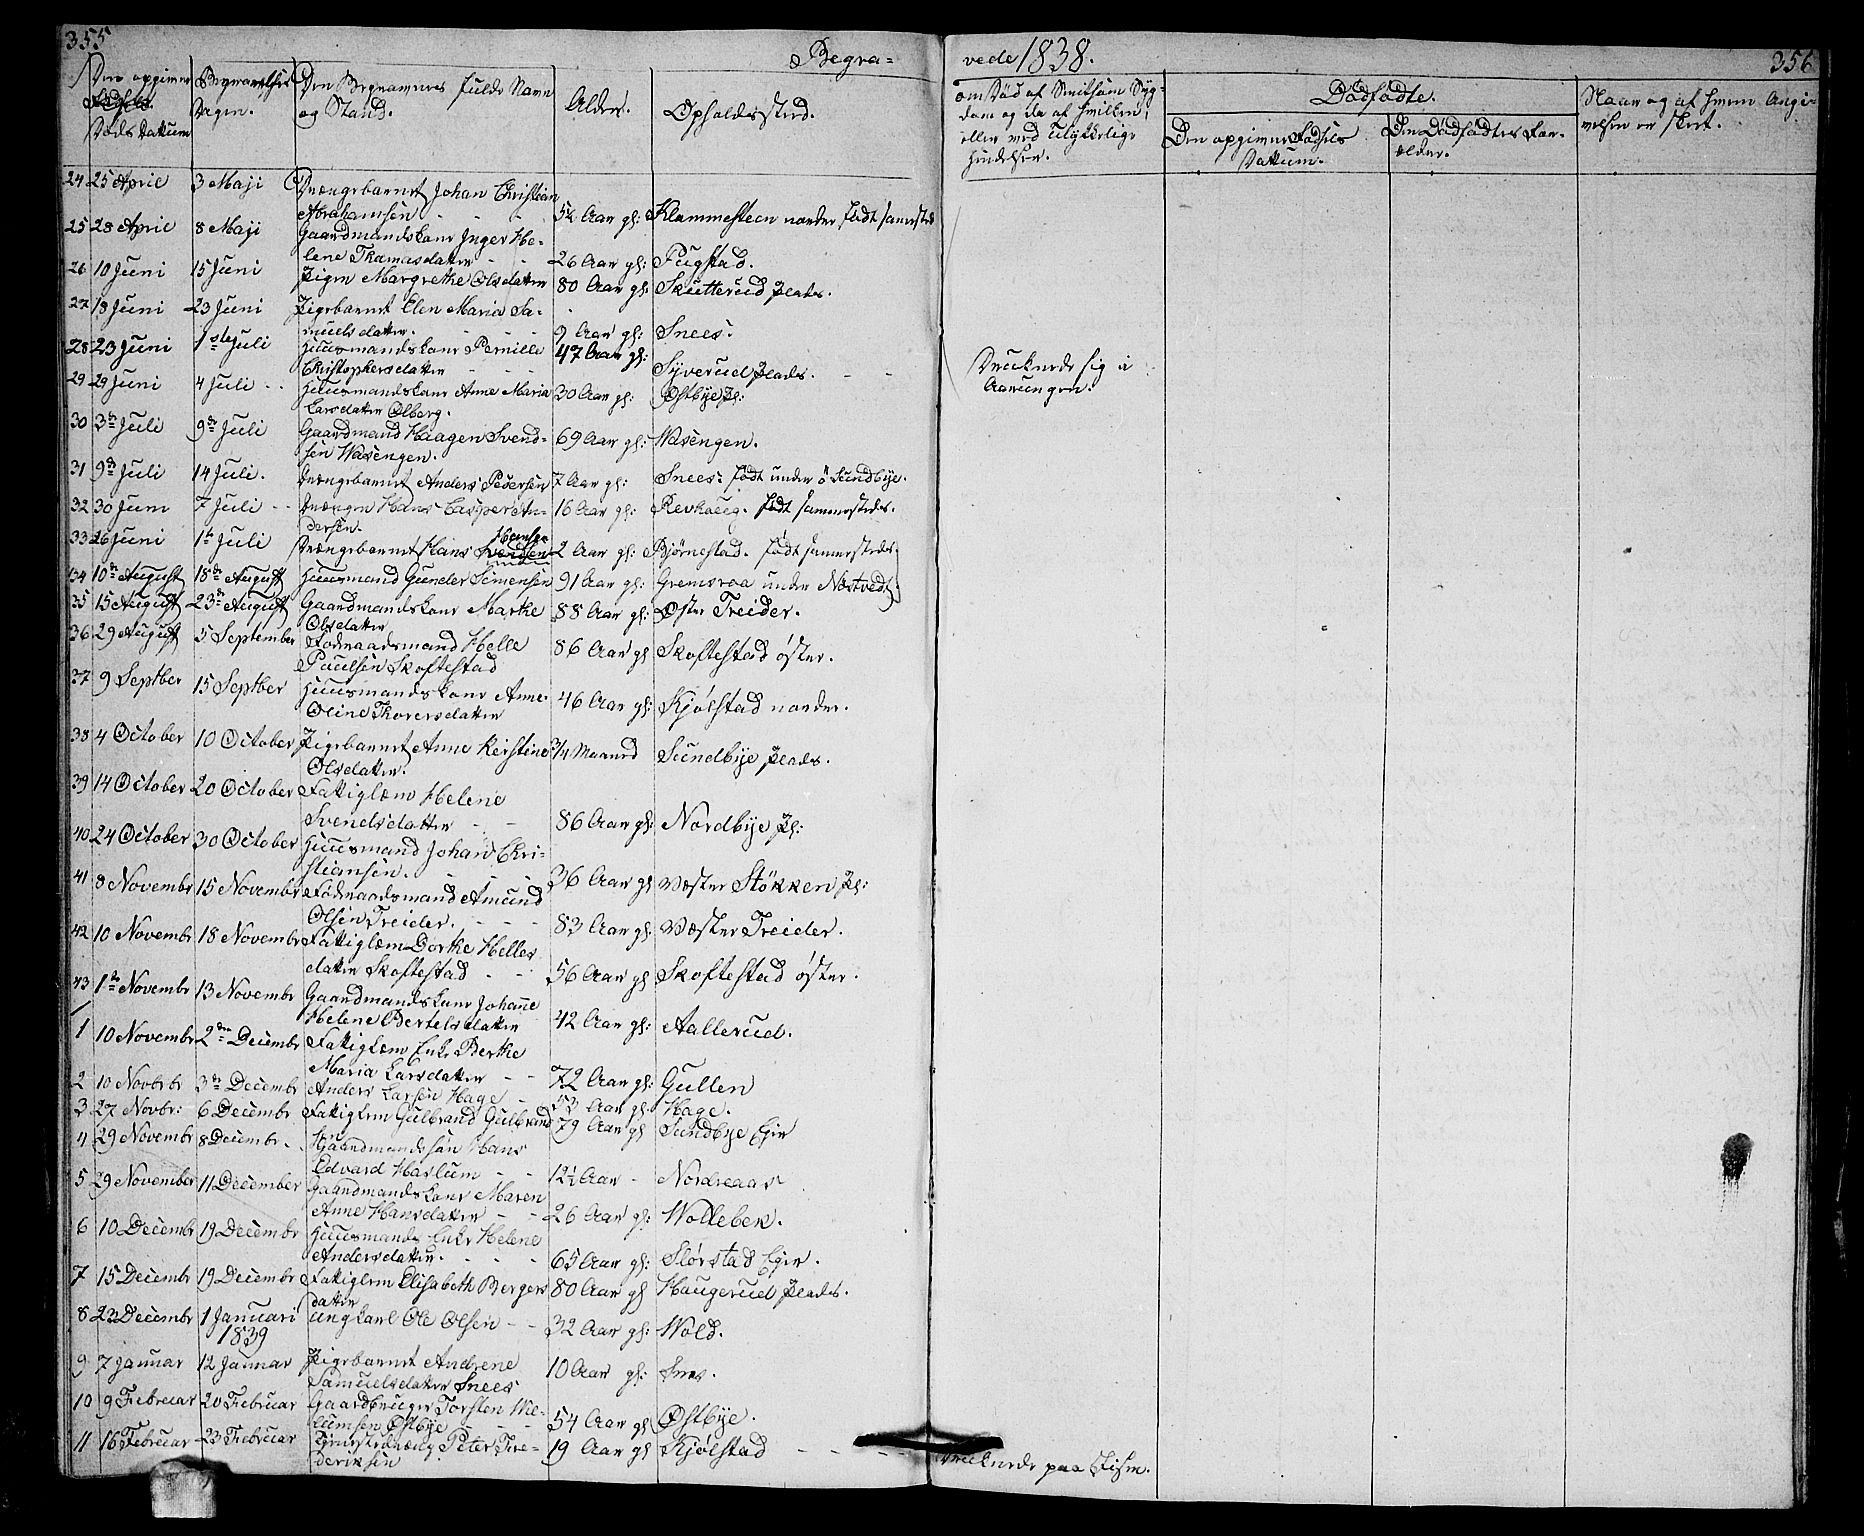 355
Begra= vede 1838.
356
Den opgivne Døds Datum
Begravelses Dagen.
Den Begravnes fulde Navn og Stand.
Alder.
Opholdssted.
om Død af Smitsom Sygdom og da af hvilken, eller ved Ulykkelige Hendelser.
Dødfødte.
Den opgivne Fødsels Datum.
Den Dødfødtes Forælder.
Naar og af hvem Angivelsen er skeet.
24 25 April 3 Maji Drængebarnet Johan Christian
Abrahamsen - - - 5¼ Aar gl: Klommesteen nordre født sammested
25 28 April 8 Maji Gaardmandskone Inger He-
lene Thomasdatter - - 26 Aar gl: Fugstad.
26 10 Juni 15 Juni Pigen Margrethe Olsdatter 80 Aar gl: Skutterud Plads.
27 18 Juni 23 Juni Pigebarnet Elen Maria Sa-
muelsdatter. - - 9 Aar gl: Snees.
28 23 Juni 1ste Juli Huusmandskone Pernille 47 Aar gl:
Christophersdatter - - - Syverud Plads. - - Druknede sig i
Aarungen.
29 29 Juni 4 Juli - - Huusmandskone Anne Maria 30 Aar gl: Østbye Pl:
Larsdatter Olberg.
30 3de Juli 9de Juli Gaardmand Haagen Svend-
sen Wasengen. 69 Aar gl: Wasengen.
31 9de Juli 14 Juli. Drængebarnet Anders Pedersen 7 Aar gl: Snees: født under ö Sundbye.
32 30 Juni 7 Juli - - Drængen Hans Casper An-
dersen. 16 Aar gl: Revhaug. født sammesteds.
33 26 Juni 1te Juli Drængebarnet Hans 2 Aar gl: Bjørnestad. født sammesteds.
34 10de August 18de August Huusmand Gunder Simensen 91 Aar gl: Gremsraa under Næstvedt.
35 15 August 23de August Gaardmandskone Marthe
Olsdatter 88 Aar gl: Øster Treider.
36 29 August 5 September Föderaadsmand Helle
Paulsen Skoftestad 86 Aar gl Skoftestad öster.
37 9 Septber 15 Septber Huusmandskone Anne
Oline Thorersdatter 46 Aar gl: Kjølstad nordre.
38 4 October 10 October Pigebarnet Anne Kirstine
Olsdatter. 3/4 Maaned Sundbye Plads.
39 14 October 20 October Fattiglem Helene
Svendsdatter - - 86 Aar gl: Nordbye Pl:
40 24 October 30 October Huusmand Johan Chri-
stiansen. - - - 36 Aar gl Vester Støkken Pl:
41 8 Novembr 15 Novembr Föderaadsmand Amund
Olsen Treider. - - - 83 Aar gl: Vester Treider.
42 10 Novembr 18 Novembr Fattiglem Dorthe Helles
datter Skoftestad - - 56 Aar gl Skoftestad öster.
43 1te Novembr 13 Novembr Gaardmandskone Johanne
Helene Bertelsdatter 42 Aar gl: Aallerud.
1 10 Novembr 2den Decembr Fattiglem Enke Berthe
Maria Larsdatter - - 72 Aar gl: Gullen
2 10 Novbrbr 3de Decembr Anders Larsen Hage - 53 Aar gl: Hage.
3 27 Novbr: 6 Decembr Fattiglem Gulbrand Gulbrand
sen 79 Aar gl Sundbye Eier
4 29 Novembr 8 Decembr - Gaardmandssøn Hans
Edvard Haslum - - 12½ Aar - Nordreaas
5 29 November 11 December Gaardmandskone Maren
Anne Hansdatter - - 26 Aar gl: Wollebek.
6 10 Decembr 19 Decembr Huusmands Enke Helene
Andersdatter. - - - 65 Aar gl: Størstad Eier.
7 15 Decembr 19 Decembr Fattiglem Elisabeth Bergers
datter 80 Aar gl Haugerud Plads.
8 23 Decembr 1 Januari Ungkarl Ole Olsen - - 32 Aar gl: Wold.
1839
9 7 Januar 12 Januar Pigebarnet Andrene
Samuelsdatter Snees 10 Aar gl: Snes.
10 9 Februar 20 Februar Gaardbruger Torsten Wil-
lumsen Østbye - - 54 Aar gl Østbye.
11 16 Februar 23 Februar Tjenestedræng Peter Fre-
deriksen 19 Aar gl Kjølstad - - - - Druknede paa Isen.